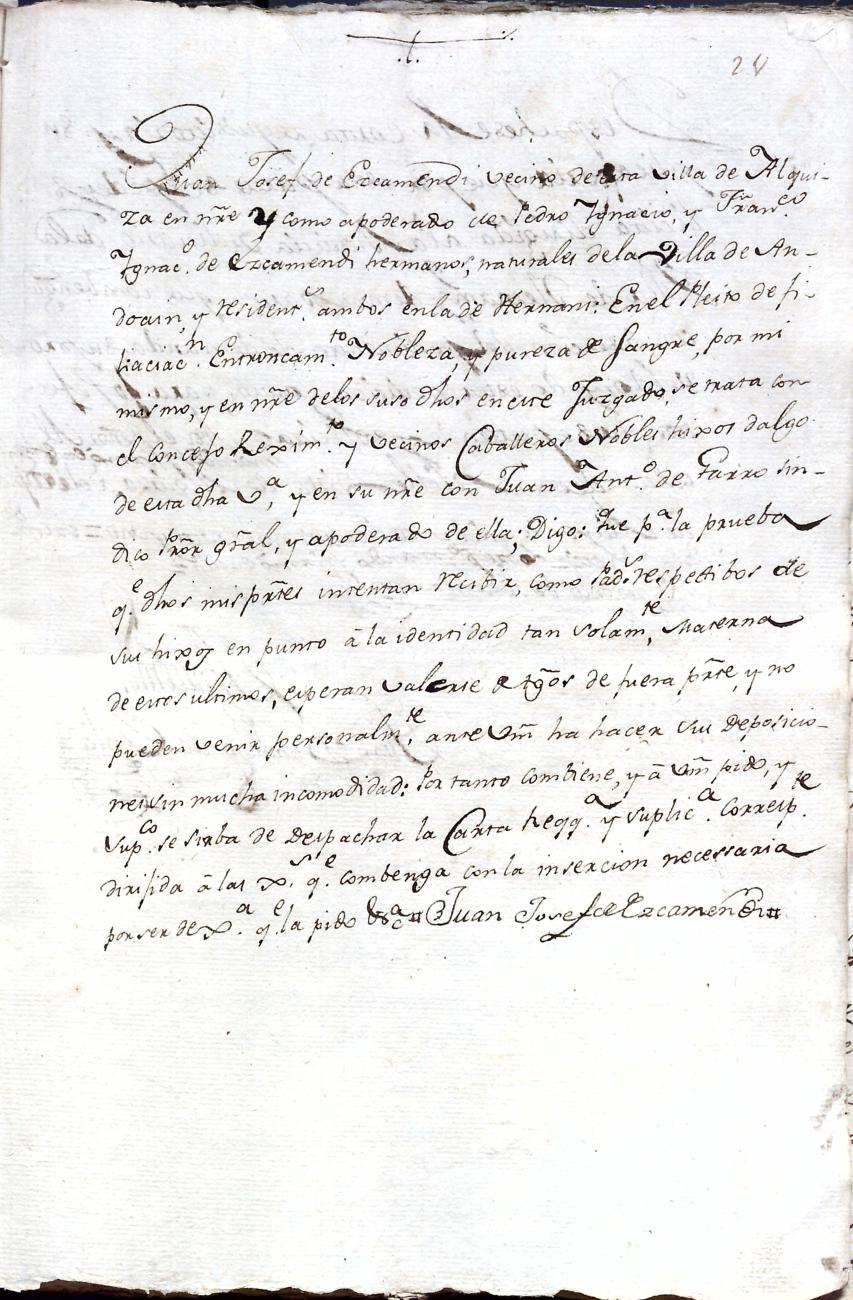 28
Juan Josef de Ezcamendi vecino de esta villa de Alqui-
za en nr̃e y como apoderado de Pedro Ygnacio, y Fran.co
Ygnac.o de Ezcamendi hermanos, naturales de la Villa de An-
doain, y resident.s ambos en la de Hernani: En el Pleito de fi-
liaciac.n Entroncam.to Nobleza, y pureza de sangre, por mi
mismo, y en nr̃e de los suso dhos en este Juzgado, se trata con
el Concejo Rexim.to y vecinos Caballeros Nobles hixos dalgo
de esta dha V.a, y en su nr̃e con Juan Ant.o de Farro sin-
dico Pror̃ gr̃al, y apoderado de ella; Digo: que p.a la prueba
q.e dhos mis pr̃tes intentan recibir, como Pad.s respectibos de
sus hixos en punto â la identidad tan solam.te, Materna
de estos ultimos, esperan valerse de tg̃os de fuera pr̃te, y no
pueden venir personalm.te, ante Vm̃ ha hacer sus Deposicio-
nes sin mucha incomodidad: Por tanto combiene, y â Vm̃ pido, y
sup.co se sirba de Despachar la Carta Reqq.a y suplic.a corresp.te
dirijida â las X.s q.e combenga con la insercion necessaria
por ser de X.a q.e la pido &a Juan Josef de Ezcamendi